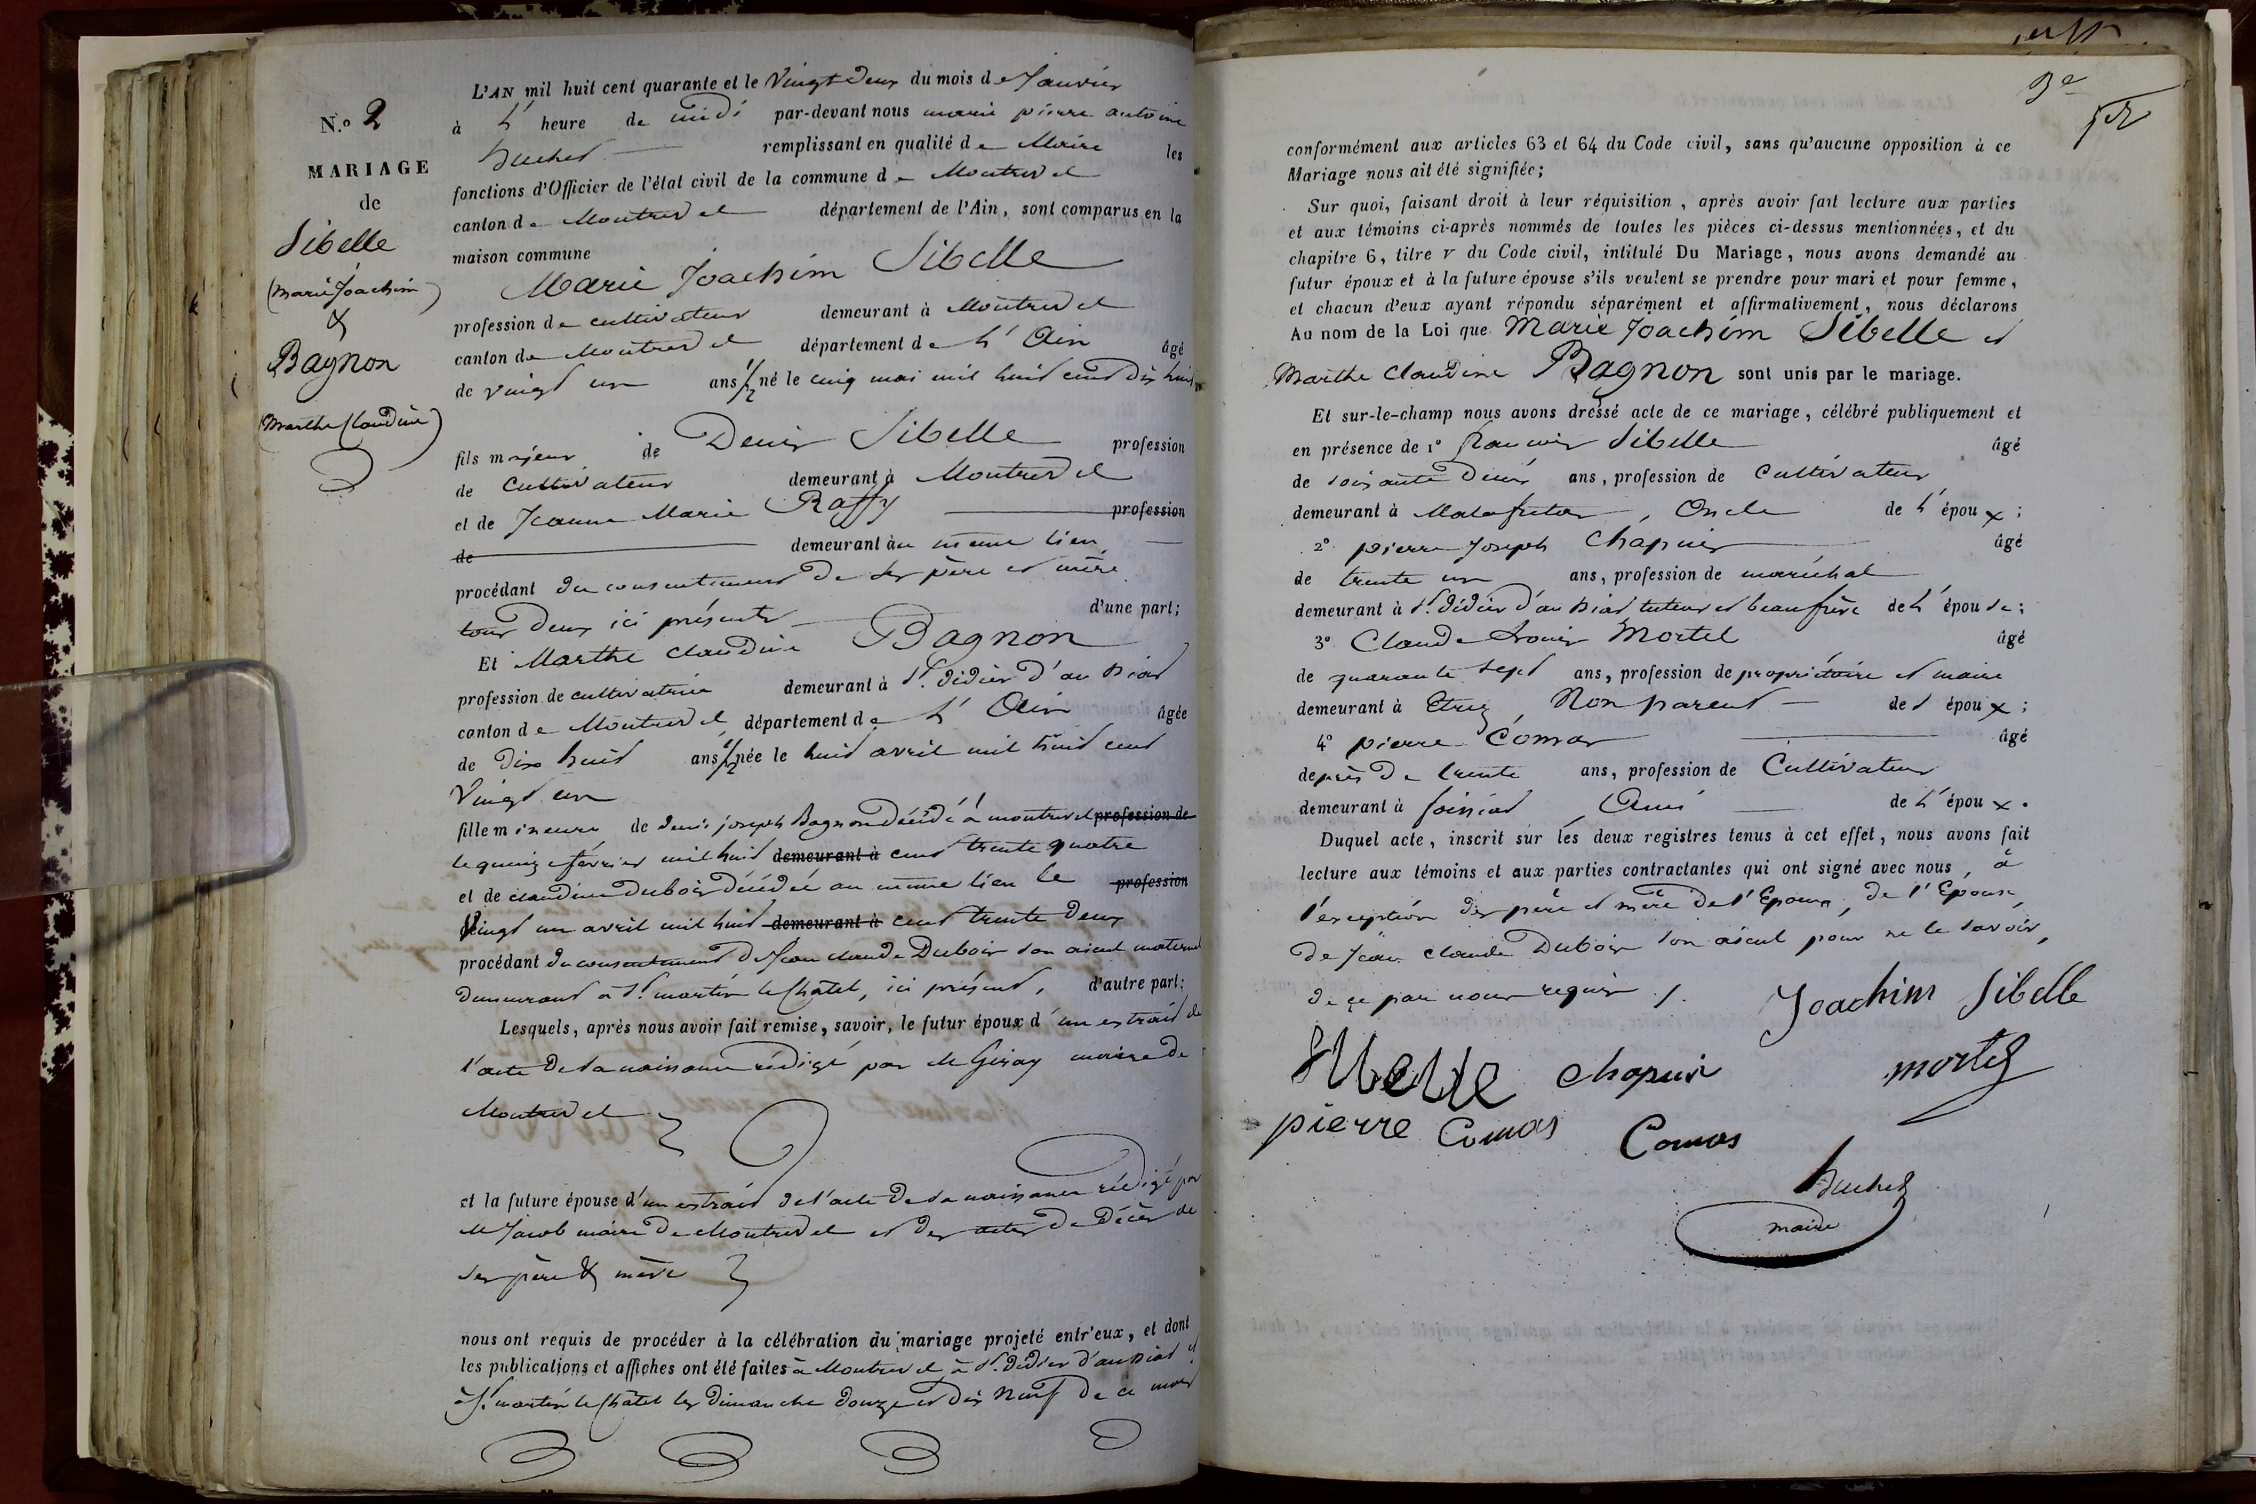 N.o 2
MARIAGE
de
Sibelle
(Marie Joachim)
&
Bagnon
(Marthe Claudine)
L'AN mil huit cent quarante et le Vingt deux du mois de Janvier
à l' heure de midi par-devant nous marie pierre antoine
Buchet remplissant en qualité de Maire les
fonctions d'Officier de l'état civil de la commune de Montrevel
canton de Montrevel département de l'Ain, sont comparus en la
maison commune
Marie Joachim Sibelle
profession de cultivateur demeurant à Montrevel
canton de Montrevel département de L' Ain âgé
de vingt un ans 1/2 né le cinq mai mil huit cent dix huit
fils majeur de Denis Sibelle profession
de Cultivateur demeurant à Montrevel
et de Jeanne Marie Raffy profession
de demeurant au meme lieu
procédant du consentement de ses père et mère
tous deux ici présents d'une part;
Et Marthe claudine Bagnon
profession de cultivatrice demeurant à St. didier d'aussiat
canton de Montrevel département de L' Ain âgée
de Dix huit ans 1/2 née le huit avril mil huit cent
Vingt un
fille mineure de denis joseph Bagnon Décédé à montrevel profession de
le quinze février mil huit demeurant à cent trente quatre
et de claudine Dubois décédée au meme lieu le profession
Vingt un avril mil huit demeurant à cent trente deux
procédant du consentement de Jean claude Dubois son aieul maternel
demeurant à St. martin le Châtel, ici présent, d'autre part;
Lesquels, après nous avoir fait remise, savoir, le futur époux d'un extrait de
l'acte de sa naissance rédigé par M maire de
Montrevel
et la future épouse d'un extrait de l'acte de sa naissance rédigé par
M Jacob maire de Montrevel et des actes de Décès de
ses père & mère
nous ont requis de procéder à la célébration du mariage projeté entr'eux, et dont
les publications et affiches ont été faites à Montrevel à St. Didier d'aussiat et
à St. martin le Châtel les dimanche douze et dix Neuf de ce mois
3e
conformément aux articles 63 et 64 du Code civil, sans qu'aucune opposition à ce
Mariage nous ait été signifiée;
Sur quoi, faisant droit à leur réquisition, après avoir fait lecture aux parties
et aux témoins ci-après nommés de toutes les pièces ci-dessus mentionnées, et du
chapitre 6, titre v du Code civil, intitulé Du Mariage, nous avons demandé au
futur époux et à la future épouse s'ils veulent se prendre pour mari et pour femme,
et chacun d'eux ayant répondu séparément et affirmativement, nous déclarons
Au nom de la Loi que Marie Joachim Sibelle et
Marthe Claudine Bagnon sont unis par le mariage.
Et sur-le-champ nous avons dressé acte de ce mariage, célébré publiquement et
en présence de 1o François Sibelle âgé
de soixante deux ans, profession de Cultivateur
demeurant à Malafretaz, Oncle de L' époux;
2o pierre Joseph Chapuis âgé
de trente un ans, profession de maréchal
demeurant à St. didier d'aussiat tuteur et beaufrère de L' épouse;
3o Claude Louis Mortel âgé
de quarante sept ans, profession de propriétaire et maire
demeurant à Etrez, Non parent des époux;
4o pierre Comas âgé
de près de trente ans, profession de Cultivateur
demeurant à foissiat Ami de L' époux.
Duquel acte, inscrit sur les deux registres tenus à cet effet, nous avons fait
lecture aux témoins et aux parties contractantes qui ont signé avec nous, à
l'exception des père et mère de l'Epoux, de l'Epouse,
de Jean claude Dubois son aieul pour ne le savoir,
de ce par nous requis ./.
Joachim Sibelle
Sibelle chapuis mortel
pierre Comas Comas
Buchet
maire